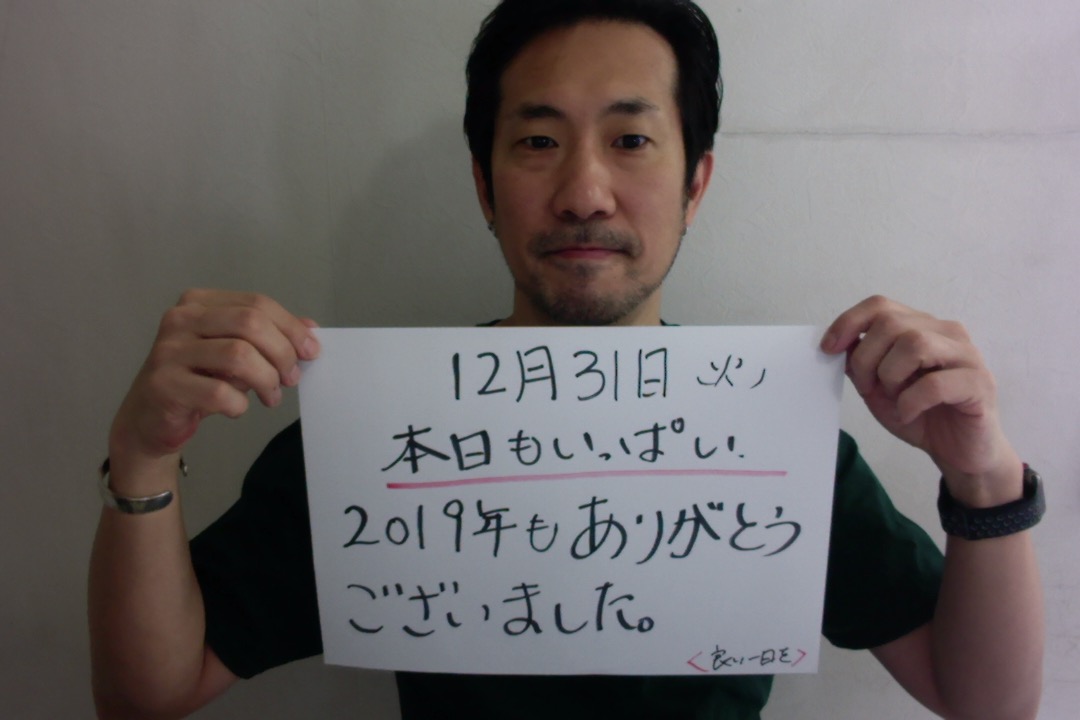 12月31日(火)
本日もいっぱい.
2019年もありがとう
ございました。
<良い一日を>